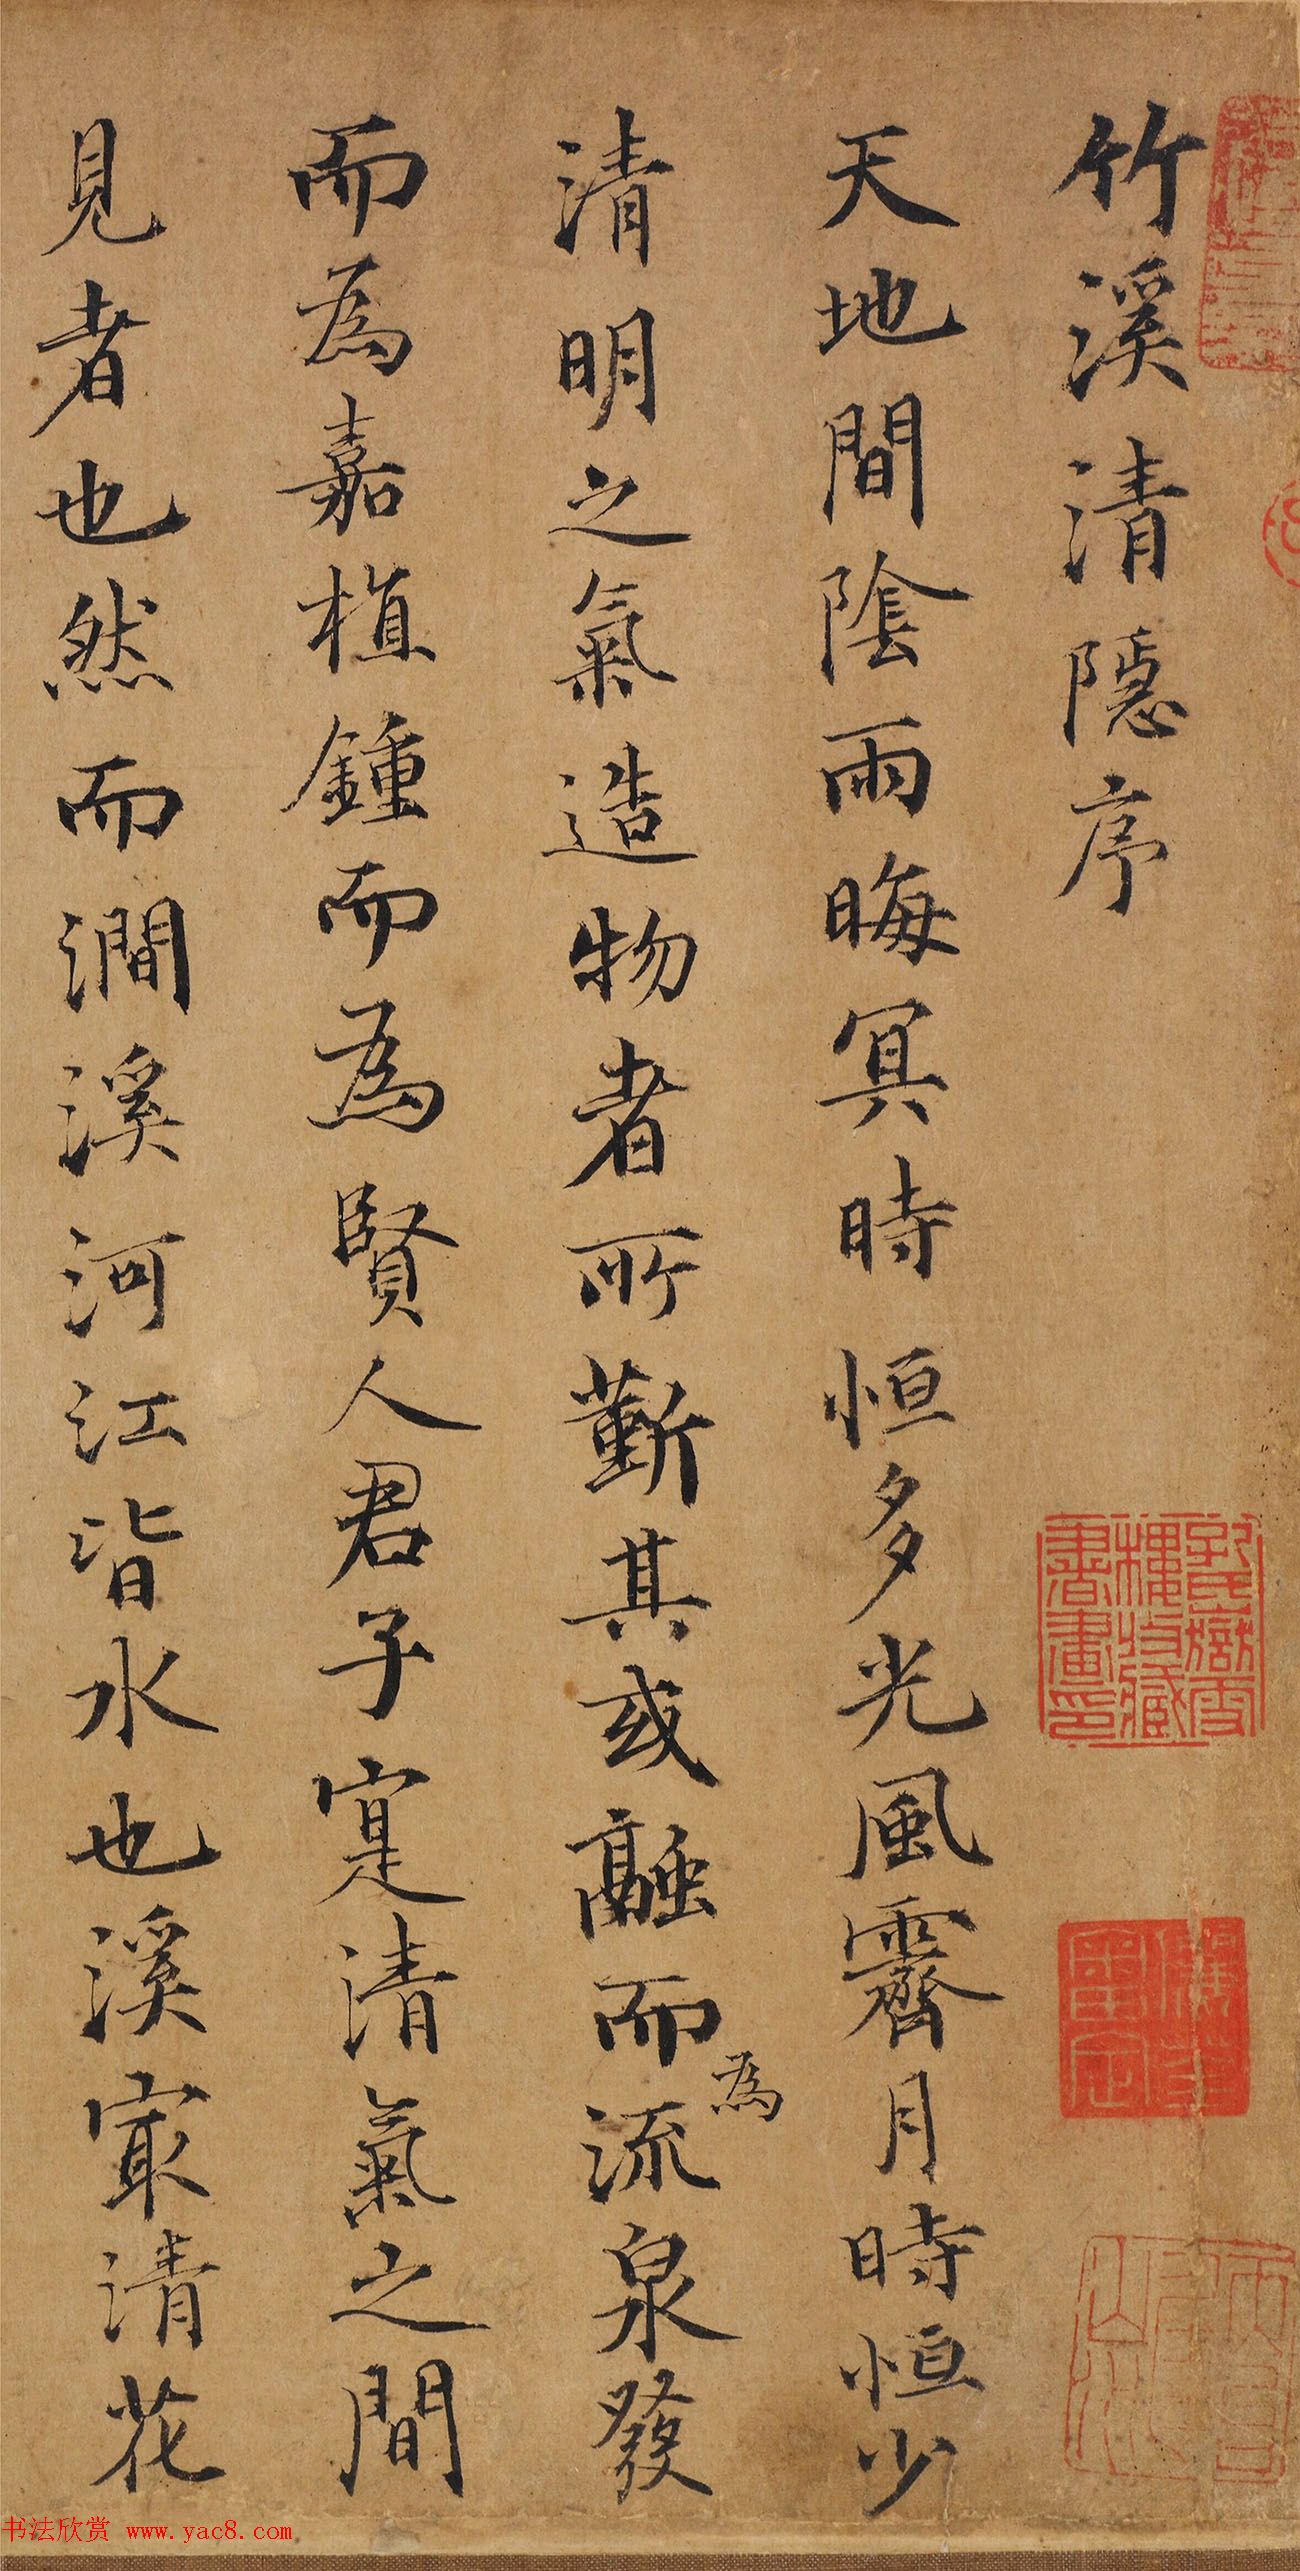 竹溪清隱序
天地間陰雨晦冥時恒多光風霽月時恒少
清明之氣造物者所蘄其或融而為流泉發
而為嘉植鍾而為賢人君子寔清氣之間
見者也然而澗溪河江皆水也溪冣清花
書畫印
书法欣赏 www.yac8.com